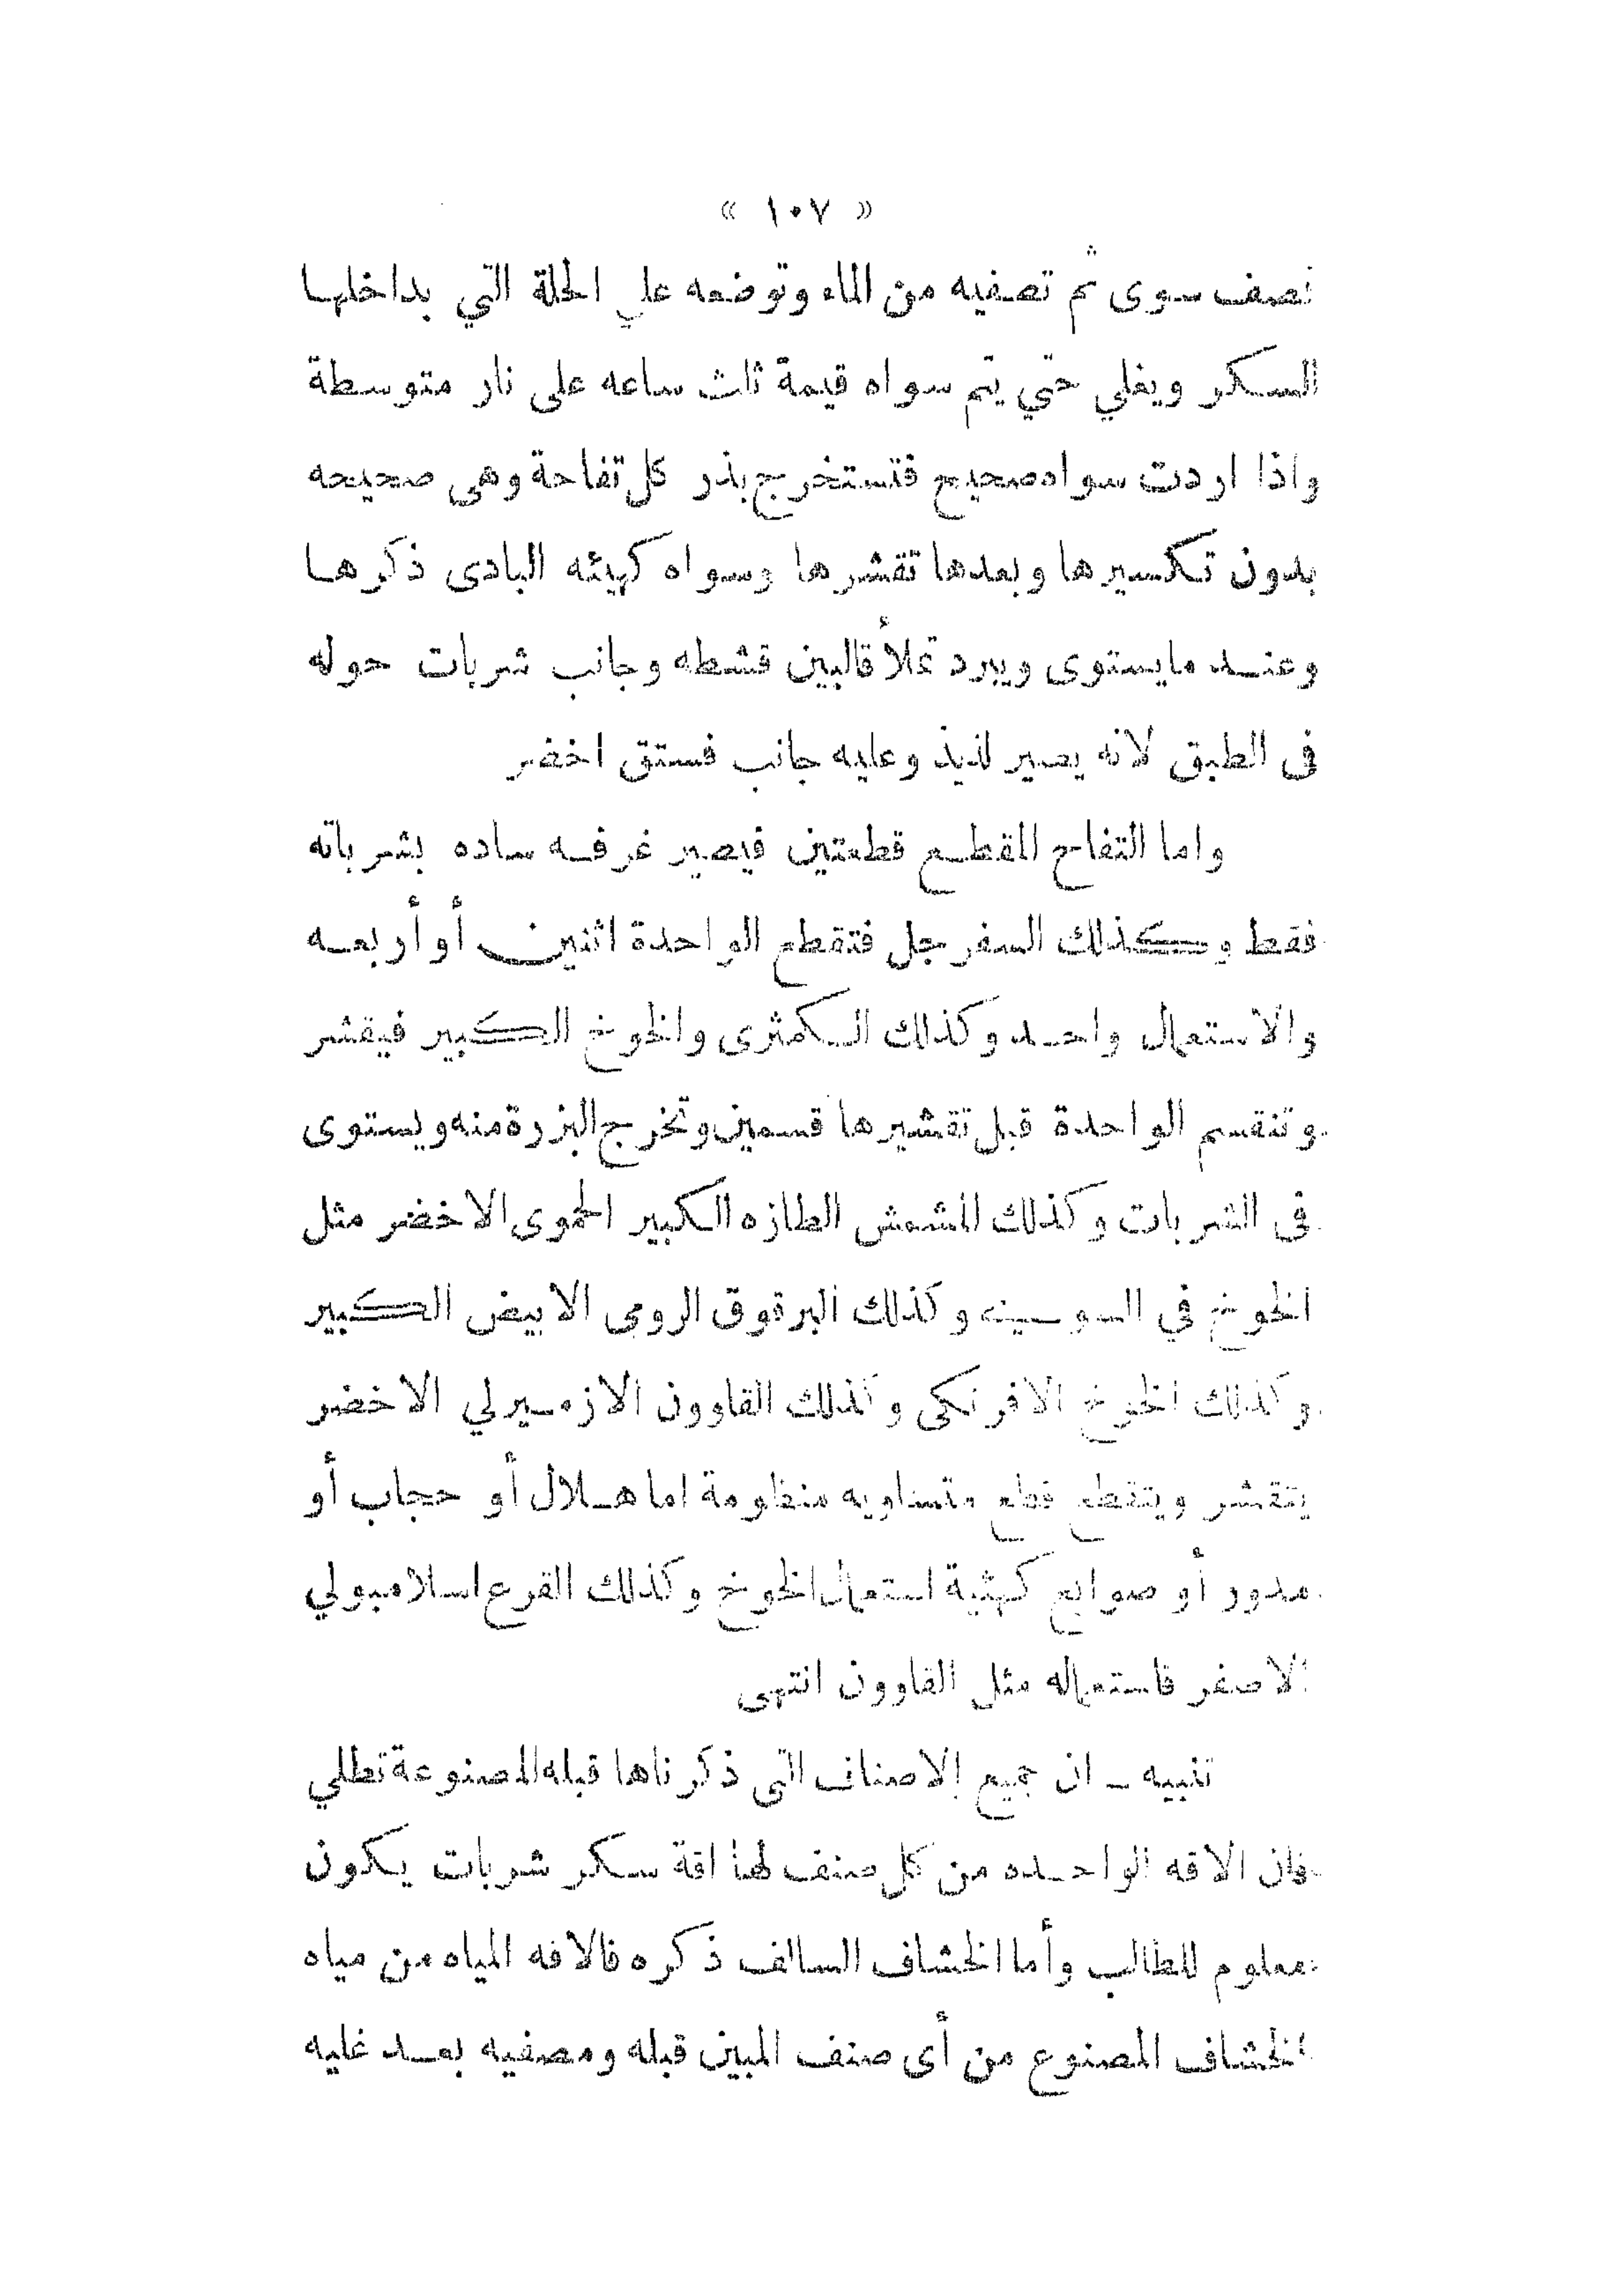 « ١٠٧ »
نصف سوى ثم تصفيه من الماء وتوضعه علي الحلة التي بداخلها
السكر ويغلي حتي يتم سواه قيمة ثلث ساعه على نار متوسطة
واذا اردت سواه صحيح فتستخرج بذر كل تفاحة وهى صحيحه
بدون تكسيرها وبعدها تقشرها وسواه كهيئه البادى ذكرها
وعند مايستوى ويبرد تملأ قالبين قشطه وجانب شربات حوله
فى الطبق لانه يصير لذيذ وعليه جانب فستق اخضر
واما التفاح المقطع قطعتين فيصير غرفه ساده بشرباته
فقط وكذلك السفرجل فتقطع الواحدة اثنين أو أربعه
والاستعمال واحد وكذلك الكمثرى والخوخ الكبير فيقشر
وتنقسم الواحدة قبل تقشيرها قسمين وتخرج البزرة منه ويستوى
فى الشربات وكذلك المشمش الطازه الكبير الحموى الاخضر مثل
الخوخ في السوسينه وكذلك البرقوق الرومى الابيض الكبير
وكذلك الخوخ الافرنكى وكذلك القاوون الازميرلي الاخضر
يتقشر ويتقطع قطع متساويه منظومة اما هلال أو حجاب أو
مدور أو صوابع كهيئة استعمال الخوخ وكذلك القرع اسلامبولي
الاصفر فاستعماله مثل القاوون انتهى
تنبيه ـ ان جميع الاصناف التى ذكرناها قبله المصنوعة تطلي
فان الاقه الواحده من كل صنف لها اقة سكر شربات يكون
معلوم للطالب وأما الخشاف السالف ذكره فالاقه المياه من مياه
الخشاف المصنوع من أى صنف المبين قبله ومصفيه بعد غليه